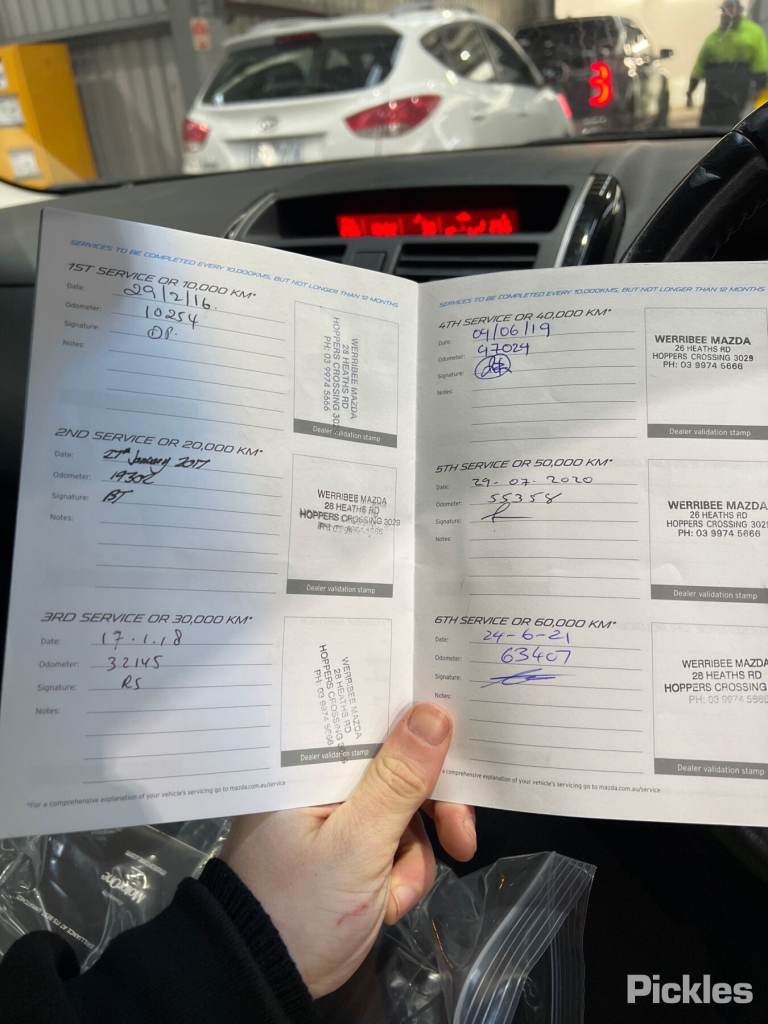 SERVICES TO BE COMPLETED EVERY 10,000KMS, BUT NOT LONGER THAN 12 MONTHS
1ST SERVICE OR 10,000 KM*
Date: 29/2/16.
Odometer: 10254
Signature: DP.
Notes:
WERRIBEE MAZDA
26 HEATHS RD
HOPPERS CROSSING 302
PH: 03 9974 5666
Dealer validation stamp
2ND SERVICE OR 20,000 KM*
Date: 27th January 2017
Odometer: 19302
Signature: BT
Notes:
WERRIBEE MAZDA
26 HEATHS RD
HOPPERS CROSSING 3029
PH: 03 9974 5666
Dealer validation stamp
3RD SERVICE OR 30,000 KM*
Date: 17.1.18
Odometer: 32145
Signature: RS
Notes:
WERRIBEE MAZDA
26 HEATHS RD
HOPPERS CROSSING
PH: 03 9974 5666
Dealer validation stamp
*For a comprehensive explanation of your vehicle's servicing go to mazda.com.au/service
SERVICES TO BE COMPLETED EVERY 10,000KMS, BUT NOT LONGER THAN 12 MONTHS
4TH SERVICE OR 40,000 KM*
Date: 04/06/19
Odometer: 47024
Signature:
Notes:
WERRIBEE MAZDA
26 HEATHS RD
HOPPERS CROSSING 3029
PH: 03 9974 5666
Dealer validation stamp
5TH SERVICE OR 50,000 KM*
Date: 29-07-2020
Odometer: 55358
Signature:
Notes:
WERRIBEE MAZDA
26 HEATHS RD
HOPPERS CROSSING 3029
PH: 03 9974 5666
Dealer validation stamp
6TH SERVICE OR 60,000 KM*
Date: 24-6-21
Odometer: 63407
Signature:
Notes:
WERRIBEE MAZDA
26 HEATHS RD
HOPPERS CROSSING
PH: 03 9974 5666
Dealer validation stamp
a comprehensive explanation of your vehicle's servicing go to mazda.com.au/service
3
Pickles